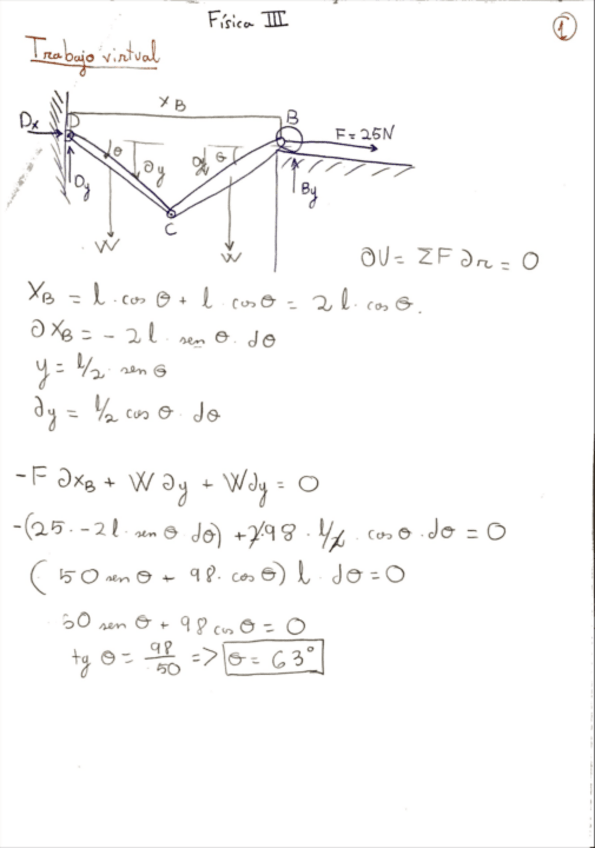 Física III
1
Trabajo virtual
x B
Dx
D
B
F = 25N
θ
∂y
∂y
θ
Dy
By
C
W
W
∂U = ΣF ∂r = 0
XB = l · cos θ + l · cos θ = 2 l · cos θ.
∂XB = - 2 l · sen θ · dθ
y = l/2 · sen θ
∂y = l/2 cos θ · dθ
-F ∂xB + W ∂y + W∂y = 0
-(25 · -2l · sen θ dθ) + 2·98 · l/2 · cos θ · dθ = 0
( 50 sen θ + 98 · cos θ) l · dθ = 0
50 sen θ + 98 cos θ = 0
tg θ = 98/50 => θ = 63°